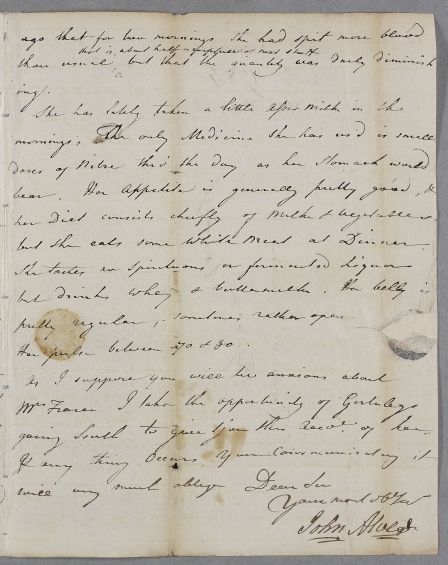 ago that for two mornings She had spit more blood
that is, about half a of most Stuff
than usual, but that the quantity was daily diminish
ing.
She has lately taken a little Asses Milk in the
mornings, The only Medicine She has us'd is small
doses of Nitre thro' the Day as her Stomach would
bear. Her Appetite is generally pretty good, &
her Diet consists chiefly of Milk & Vegetables
but She eats some White Meat at Dinner
She tastes no Spirituous or fermented Liquor
but drinks Whey & buttermilk. Her belly is
pretty regular, sometimes rather open
Her pulse between 70 & 80.
As I suppose you will be anxious about
Mrs Fraser I take the opportunity of
going South to give you this Accot. of her.
If any thing Occurs Your Communicating it
will very much oblige Dear Sir
Your most Obt. Ser
John Alves